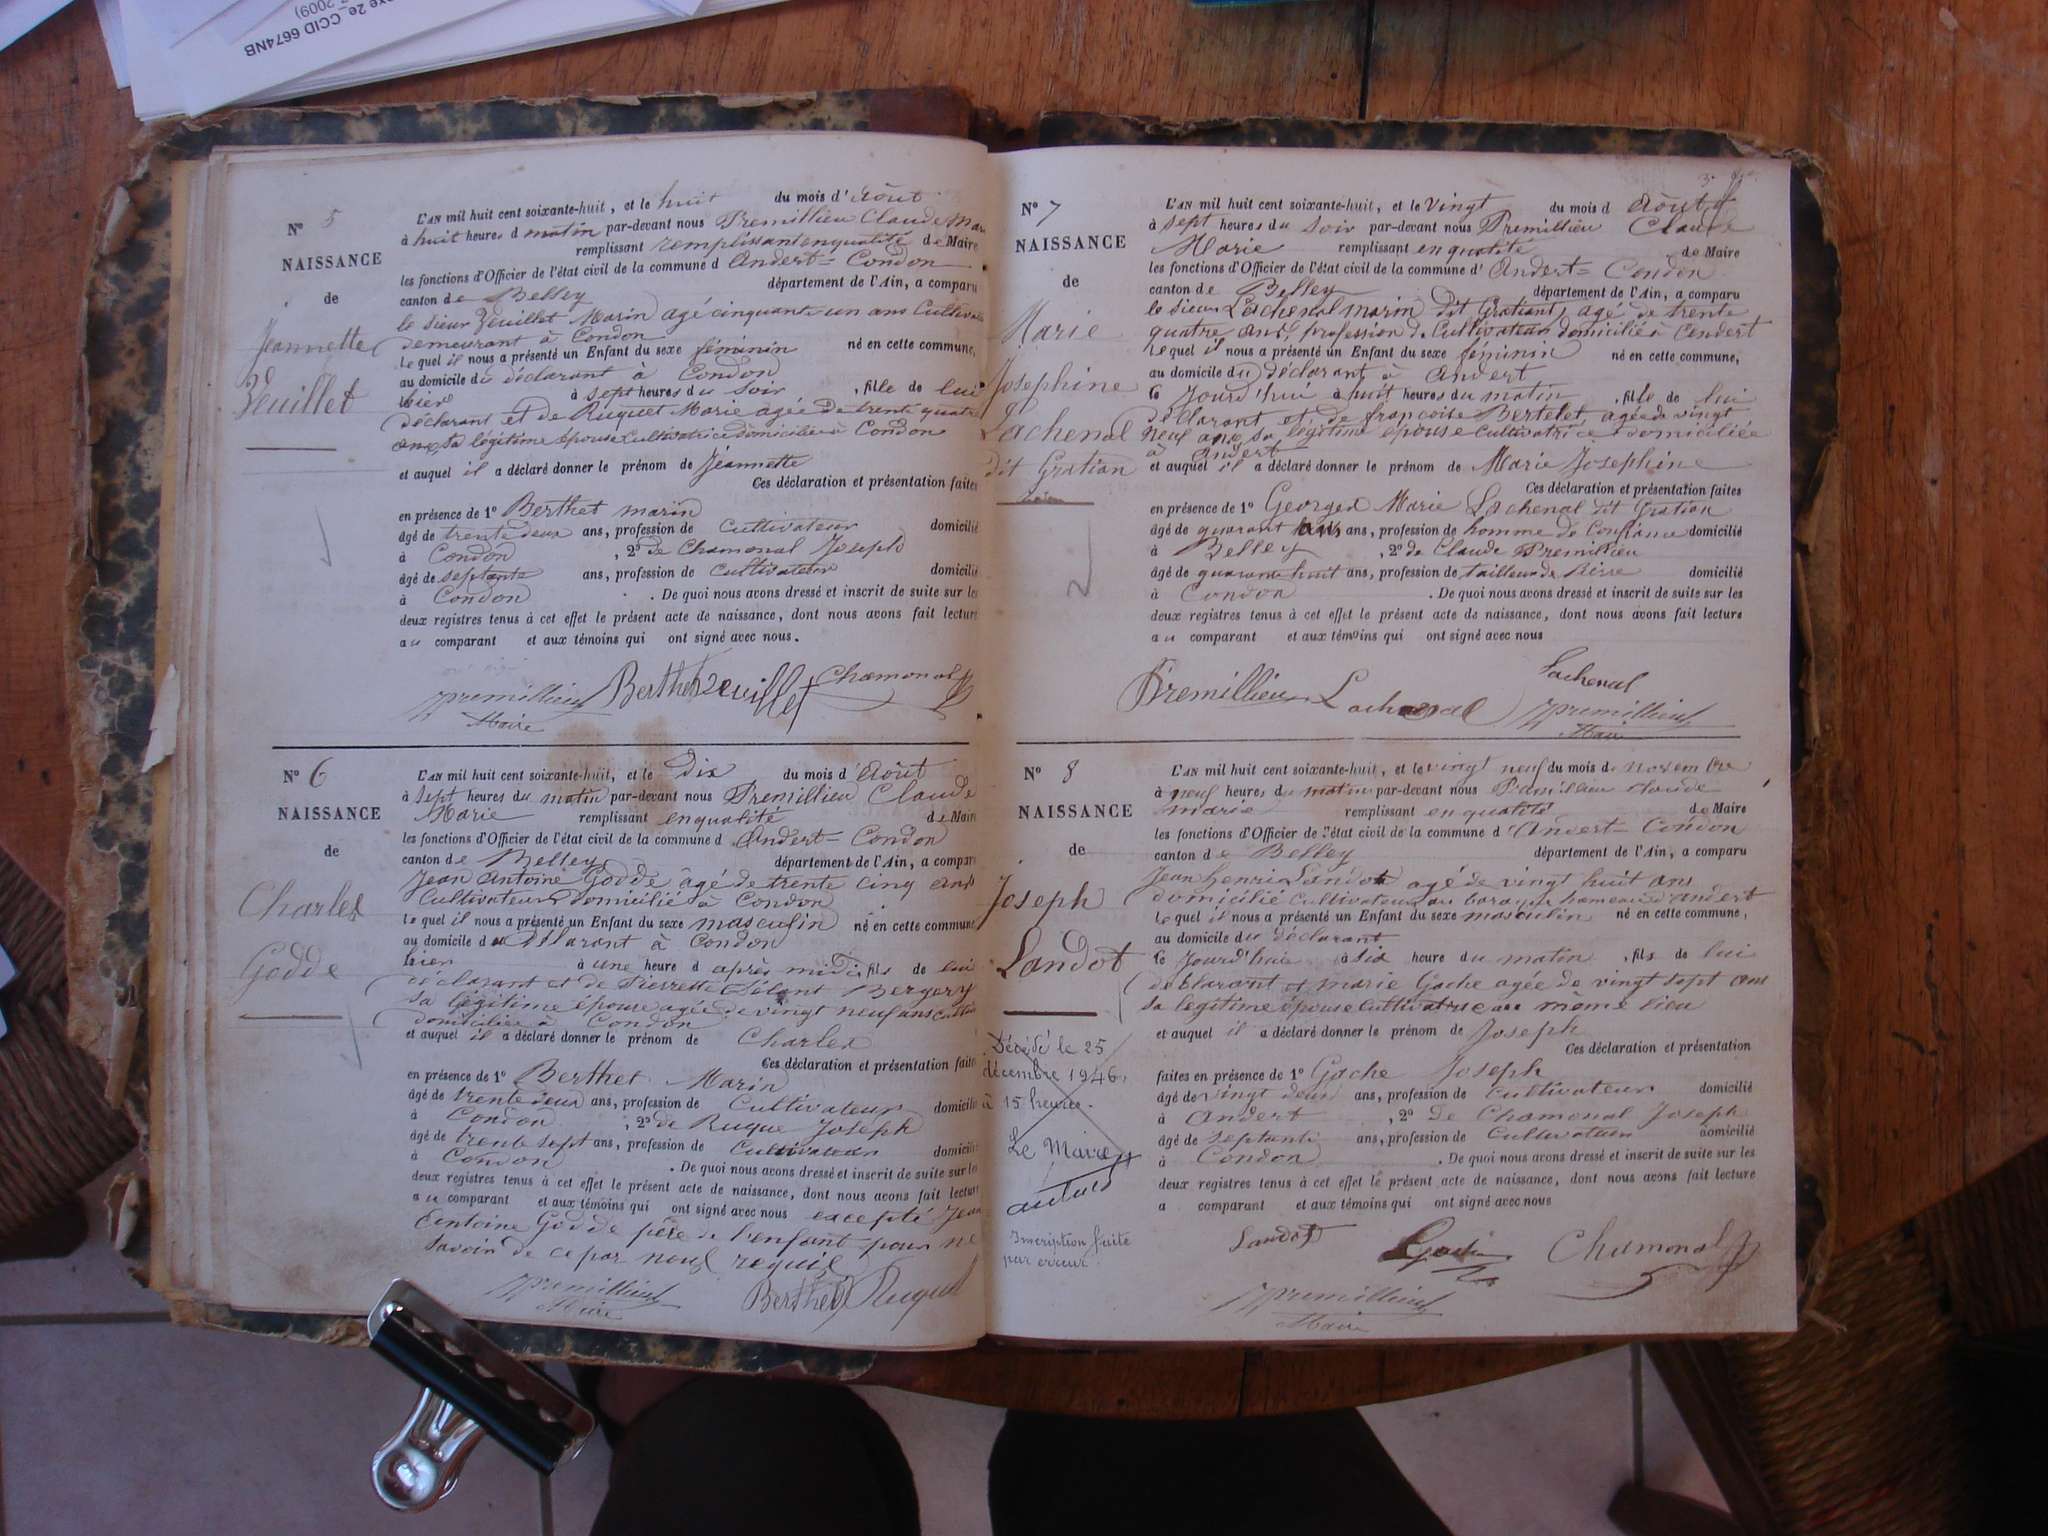 xe 2e_CCID 6674NB
2009)
N° 5
NAISSANCE
de
Jeannette
Veuillet
L'AN mil huit cent soixante-huit, et le huit du mois d'Août
à huit heures d matin par-devant nous Premillieu Claude Mari
remplissant remplissant en qualité de Maire
les fonctions d'Officier de l'état civil de la commune d Andert-Condon
canton de Belley département de l'Ain, a comparu
le sieur Veuillet Marin agé cinquante un ans Cultivat
demeurant à Condon
Lequel il nous a présenté un Enfant du sexe féminin né en cette commune,
au domicile du déclarant à Condon
hier à sept heures du soir, fille de lui
déclarant et de Ruquet Marie agée de trente quatre
ans sa légitime épouse Cultivatrice domiciliée à Condon
et auquel il a déclaré donner le prénom de Jeannette
Ces déclaration et présentation faites
en présence de 1° Berthet marin
âgé de trente deux ans, profession de Cultivateur domicilié
à Condon, 2° de Chamonal Joseph
âgé de septante ans, profession de cultivateur domicilié
à Condon. De quoi nous avons dressé et inscrit de suite sur les
deux registres tenus à cet effet le présent acte de naissance, dont nous avons fait lecture
au comparant et aux témoins qui ont signé avec nous.
Premillieu Berthet Veuillet Chamonal
Maire
N° 6
NAISSANCE
de
Charles
Godde
L'AN mil huit cent soixante-huit, et le dix du mois d'Août
à sept heures du matin par-devant nous Premillieu Claude
Marie remplissant en qualité de Maire
les fonctions d'Officier de l'état civil de la commune d Andert-Condon
canton de Belley département de l'Ain, a comparu
Jean Antoine Godde âgé de trente cinq ans
Cultivateur domicilié à Condon
lequel il nous a présenté un Enfant du sexe masculin né en cette commune
au domicile du déclarant à Condon
hier à une heure d après midi, fils de lui
déclarant et de Pierrette Bergery
sa légitime épouse agée de vingt neuf ans
domiciliée à Condon
et auquel il a déclaré donner le prénom de Charles
Ces déclaration et présentation faites
en présence de 1° Berthet Marin
âgé de trente deux ans, profession de Cultivateur domicilié
à Condon, 2° de Ruque Joseph
âgé de trente sept ans, profession de Cultivateur domicilié
à Condon. De quoi nous avons dressé et inscrit de suite sur les
deux registres tenus à cet effet le présent acte de naissance, dont nous avons fait lecture
au comparant et aux témoins qui ont signé avec nous excepté Jean
Antoine Godde père de l'enfant pour ne
savoir de ce par nous requis
Premillieu Berthet Ruquet
Maire
N° 7
NAISSANCE
de
Marie
Josephine
Lachenal
dit Gratian
L'AN mil huit cent soixante-huit, et le vingt du mois d Août
à sept heures du soir par-devant nous Premillieu Claude
Marie remplissant en qualité de Maire
les fonctions d'Officier de l'état civil de la commune d' Andert-Condon
canton de Belley département de l'Ain, a comparu
le sieur Lachenal marin dit Gratian, agé de trente
quatre ans, profession de Cultivateur domicilié à Andert
Lequel il nous a présenté un Enfant du sexe féminin né en cette commune,
au domicile du déclarant à Andert
le Jourd'hui à huit heures du matin, fille de lui
déclarant et de françoise Bertelet agée de vingt
neuf ans sa légitime épouse cultivatrice domiciliée
à Andert
et auquel il a déclaré donner le prénom de Marie Josephine
Ces déclaration et présentation faites
en présence de 1° Georges Marie Lachenal dit Gratian
âgé de quarant ans, profession de homme de Confiance domicilié
à Belley, 2° de Claude Premillieu
âgé de quarante huit ans, profession de tailleur de Pierre domicilié
à Condon. De quoi nous avons dressé et inscrit de suite sur les
deux registres tenus à cet effet le présent acte de naissance, dont nous avons fait lecture
au comparant et aux témoins qui ont signé avec nous
Lachenal
Premillieu Lachenal Premillieu
Maire
N° 8
NAISSANCE
de
Joseph
Landot
Décédé le 25
décembre 1946,
à 15 heures.
Le Maire
Inscription faite
par erreur.
L'AN mil huit cent soixante-huit, et le vingt neuf du mois de novembre
à neuf heures du matin par-devant nous Premillieu Claude
marie remplissant en qualité de Maire
les fonctions d'Officier de l'état civil de la commune d Andert-Condon
canton de Belley département de l'Ain, a comparu
Jean henri Landot agé de vingt huit ans
domicilié Cultivateur au hameau d'andert
Lequel il nous a présenté un Enfant du sexe masculin né en cette commune,
au domicile du déclarant
le Jourd'hui à six heure du matin, fils de lui
déclarant et marie Gache agée de vingt sept ans
sa legitime épouse Cultivatrice au même lieu
et auquel il a déclaré donner le prénom de Joseph
Ces déclaration et présentation
faites en présence de 1° Gache Joseph
âgé de vingt deux ans, profession de Cultivateur domicilié
à Andert, 2° de Chamonal Joseph
âgé de septante ans, profession de Cultivateur domicilié
à Condon. De quoi nous avons dressé et inscrit de suite sur les
deux registres tenus à cet effet le présent acte de naissance, dont nous avons fait lecture
a comparant et aux témoins qui ont signé avec nous
Landot Chamonal
Premillieu
Maire